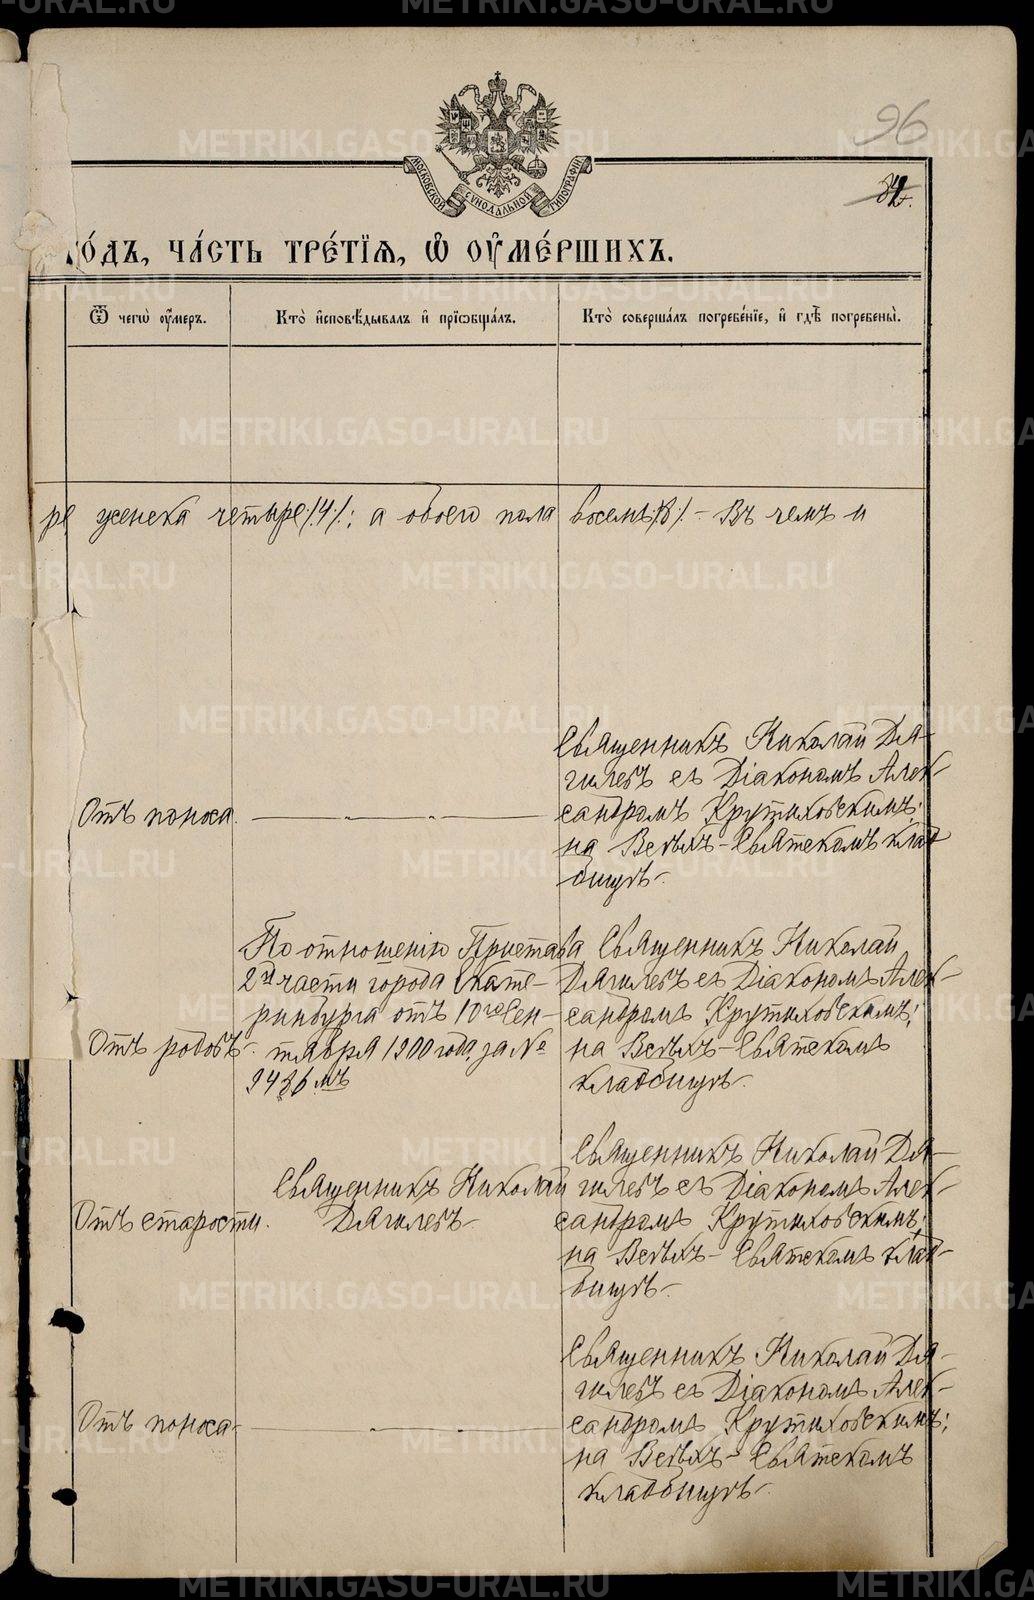 96
МОСКОВСКОЙ СѴНОДАЛЬНОЙ ТИПОГРАФІИ
го́дъ, ча́сть тре́тїѧ, ѡ҆ оу҆ме́ршихъ.
Ѿ чегѡ̀ оу҆́меръ.
Кто̀ и҆сповѣ́дывалъ и҆ прїѡбща́лъ.
Кто̀ соверша́лъ погребе́нїе, и҆ гдѣ̀ погребены̀.
женска четыре /:4:/; а обоего пола восемь /:8:/. - Въ чемъ и
Отъ поноса.
Священникъ Николай Дя-
гилевъ съ Діакономъ Алек-
сандромъ Крутиховскимъ;
на Всѣхъ-Святскомъ клад
бищѣ.
Отъ родовъ.
По отношенію Пристава
2й части города Екате-
ринбурга отъ 10го Сен-
тября 1900 года, за №
9486мъ
Священникъ Николай
Дягилевъ съ Діакономъ Алек-
сандромъ Крутиховскимъ;
на Всѣхъ-Святскомъ
кладбищѣ.
Отъ старости.
Священникъ Николай
Дягилевъ
Священникъ Николай Дя-
гилевъ съ Діакономъ Алек-
сандромъ Крутиховскимъ;
на Всѣхъ-Святскомъ клад-
бищѣ.
Отъ поноса
Священникъ Николай Дя-
гилевъ съ Діакономъ Алек-
сандромъ Крутиховскимъ;
на Всѣхъ-Святскомъ
кладбищѣ.
METRIKI.GASO-URAL.RU